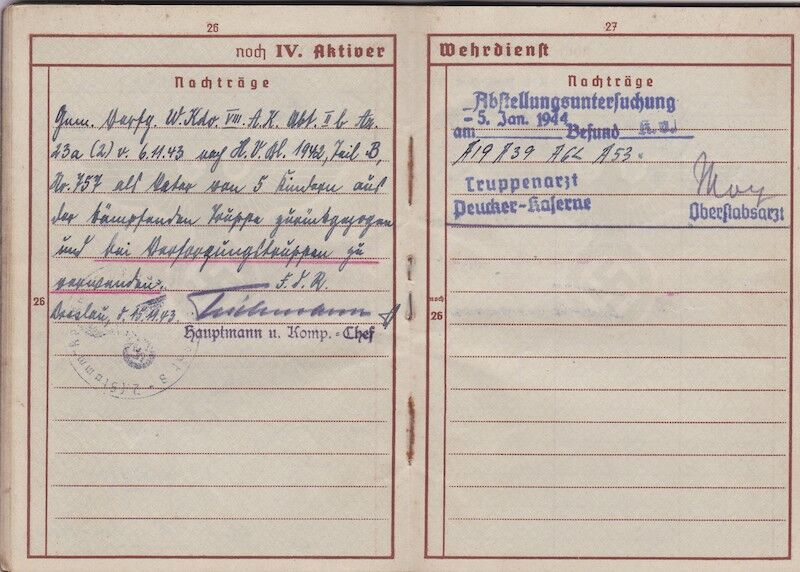 26
noch IV. Aktiver
Nachträge
Gem. Verfg. W.Kdo. VIII A.K. Abt. II b Az.
23a (2) v. 6.11.43 nach H.V.Bl. 1942, Teil B,
Nr. 757 als Vater von 5 Kindern aus
der kämpfenden Truppe zurückgezogen
und bei Versorgungstruppen zu
verwenden.
F.d.R.
26
Breslau, d. 15.11.43.
Hauptmann u. Komp.-Chef
27
Wehrdienst
Nachträge
Abstellungsuntersuchung
am - 5. Jan. 1944 Befund k.v.
A19 A39 A62 A53.
Truppenarzt
Peucker-Kaserne
Oberstabsarzt
noch
26